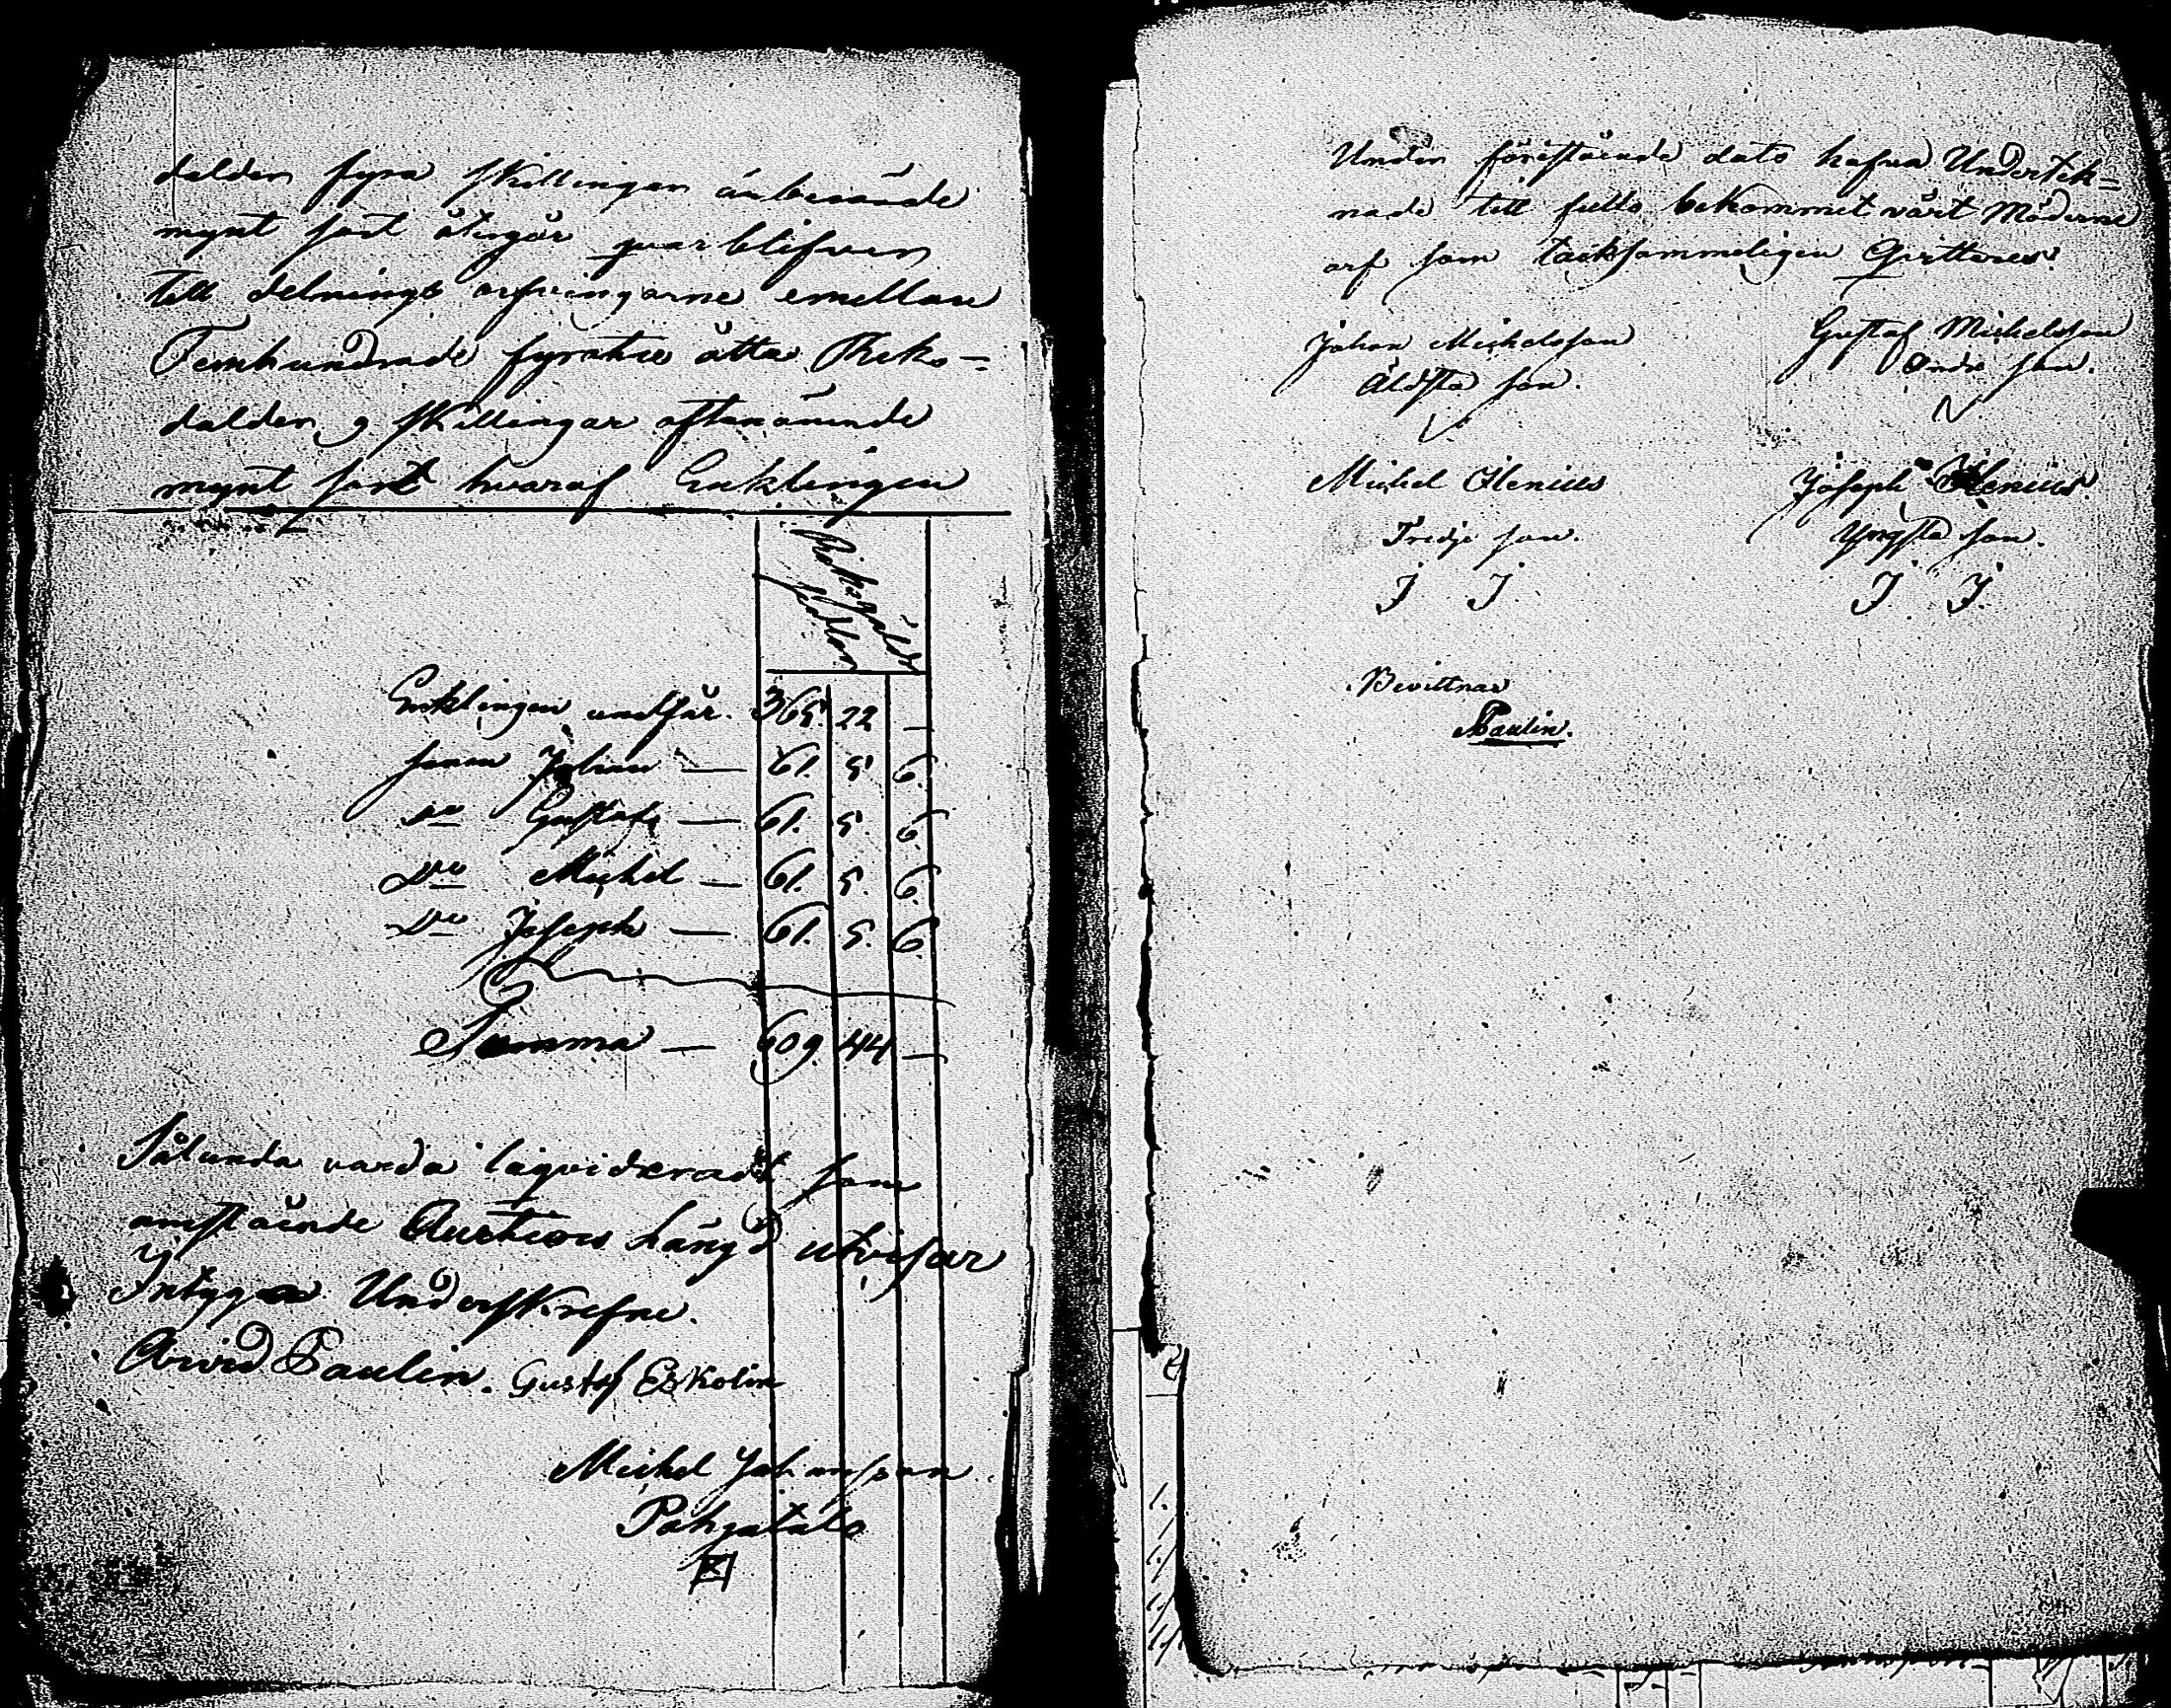 dalder fyra skillingar anberörde
mynt sort återgår quarblifven
till delnings arfvingarne emellan
Femhundrade fyratio åtta Riks=
dalder 9 skillingar oftanämde
mynt sort hvaraf Enklingen
Riksgälds
sedlar
Enklingen undfår. 365. 22 —
sonen Johan — 61. 5. 6.
Do Gustaf — 61. 5. 6.
Do Michel — 61. 5. 6.
Do Joseph — 61. 5. 6.
Summa — 609. 44 —
Sålunda varda liqvideradt som
omstående Auctions Längd utvisar
Intyga Underskrefne.
Arvid Paulin. Gustaf Eskolin
Mickel Johansson
Pohjatalo
Under förestående dato hafva Undertek=
nade till fullo bekommit vårt Möderne
arf som tacksammeligen Qvitteres.
Johan Michelsson
Äldsta son.
Gustaf Michelsson
Andre son.
Michel Ilenius
Tredje son.
Joseph Ilenius
Yngsta son.
J J
J J.
Bevittnar
APaulin.